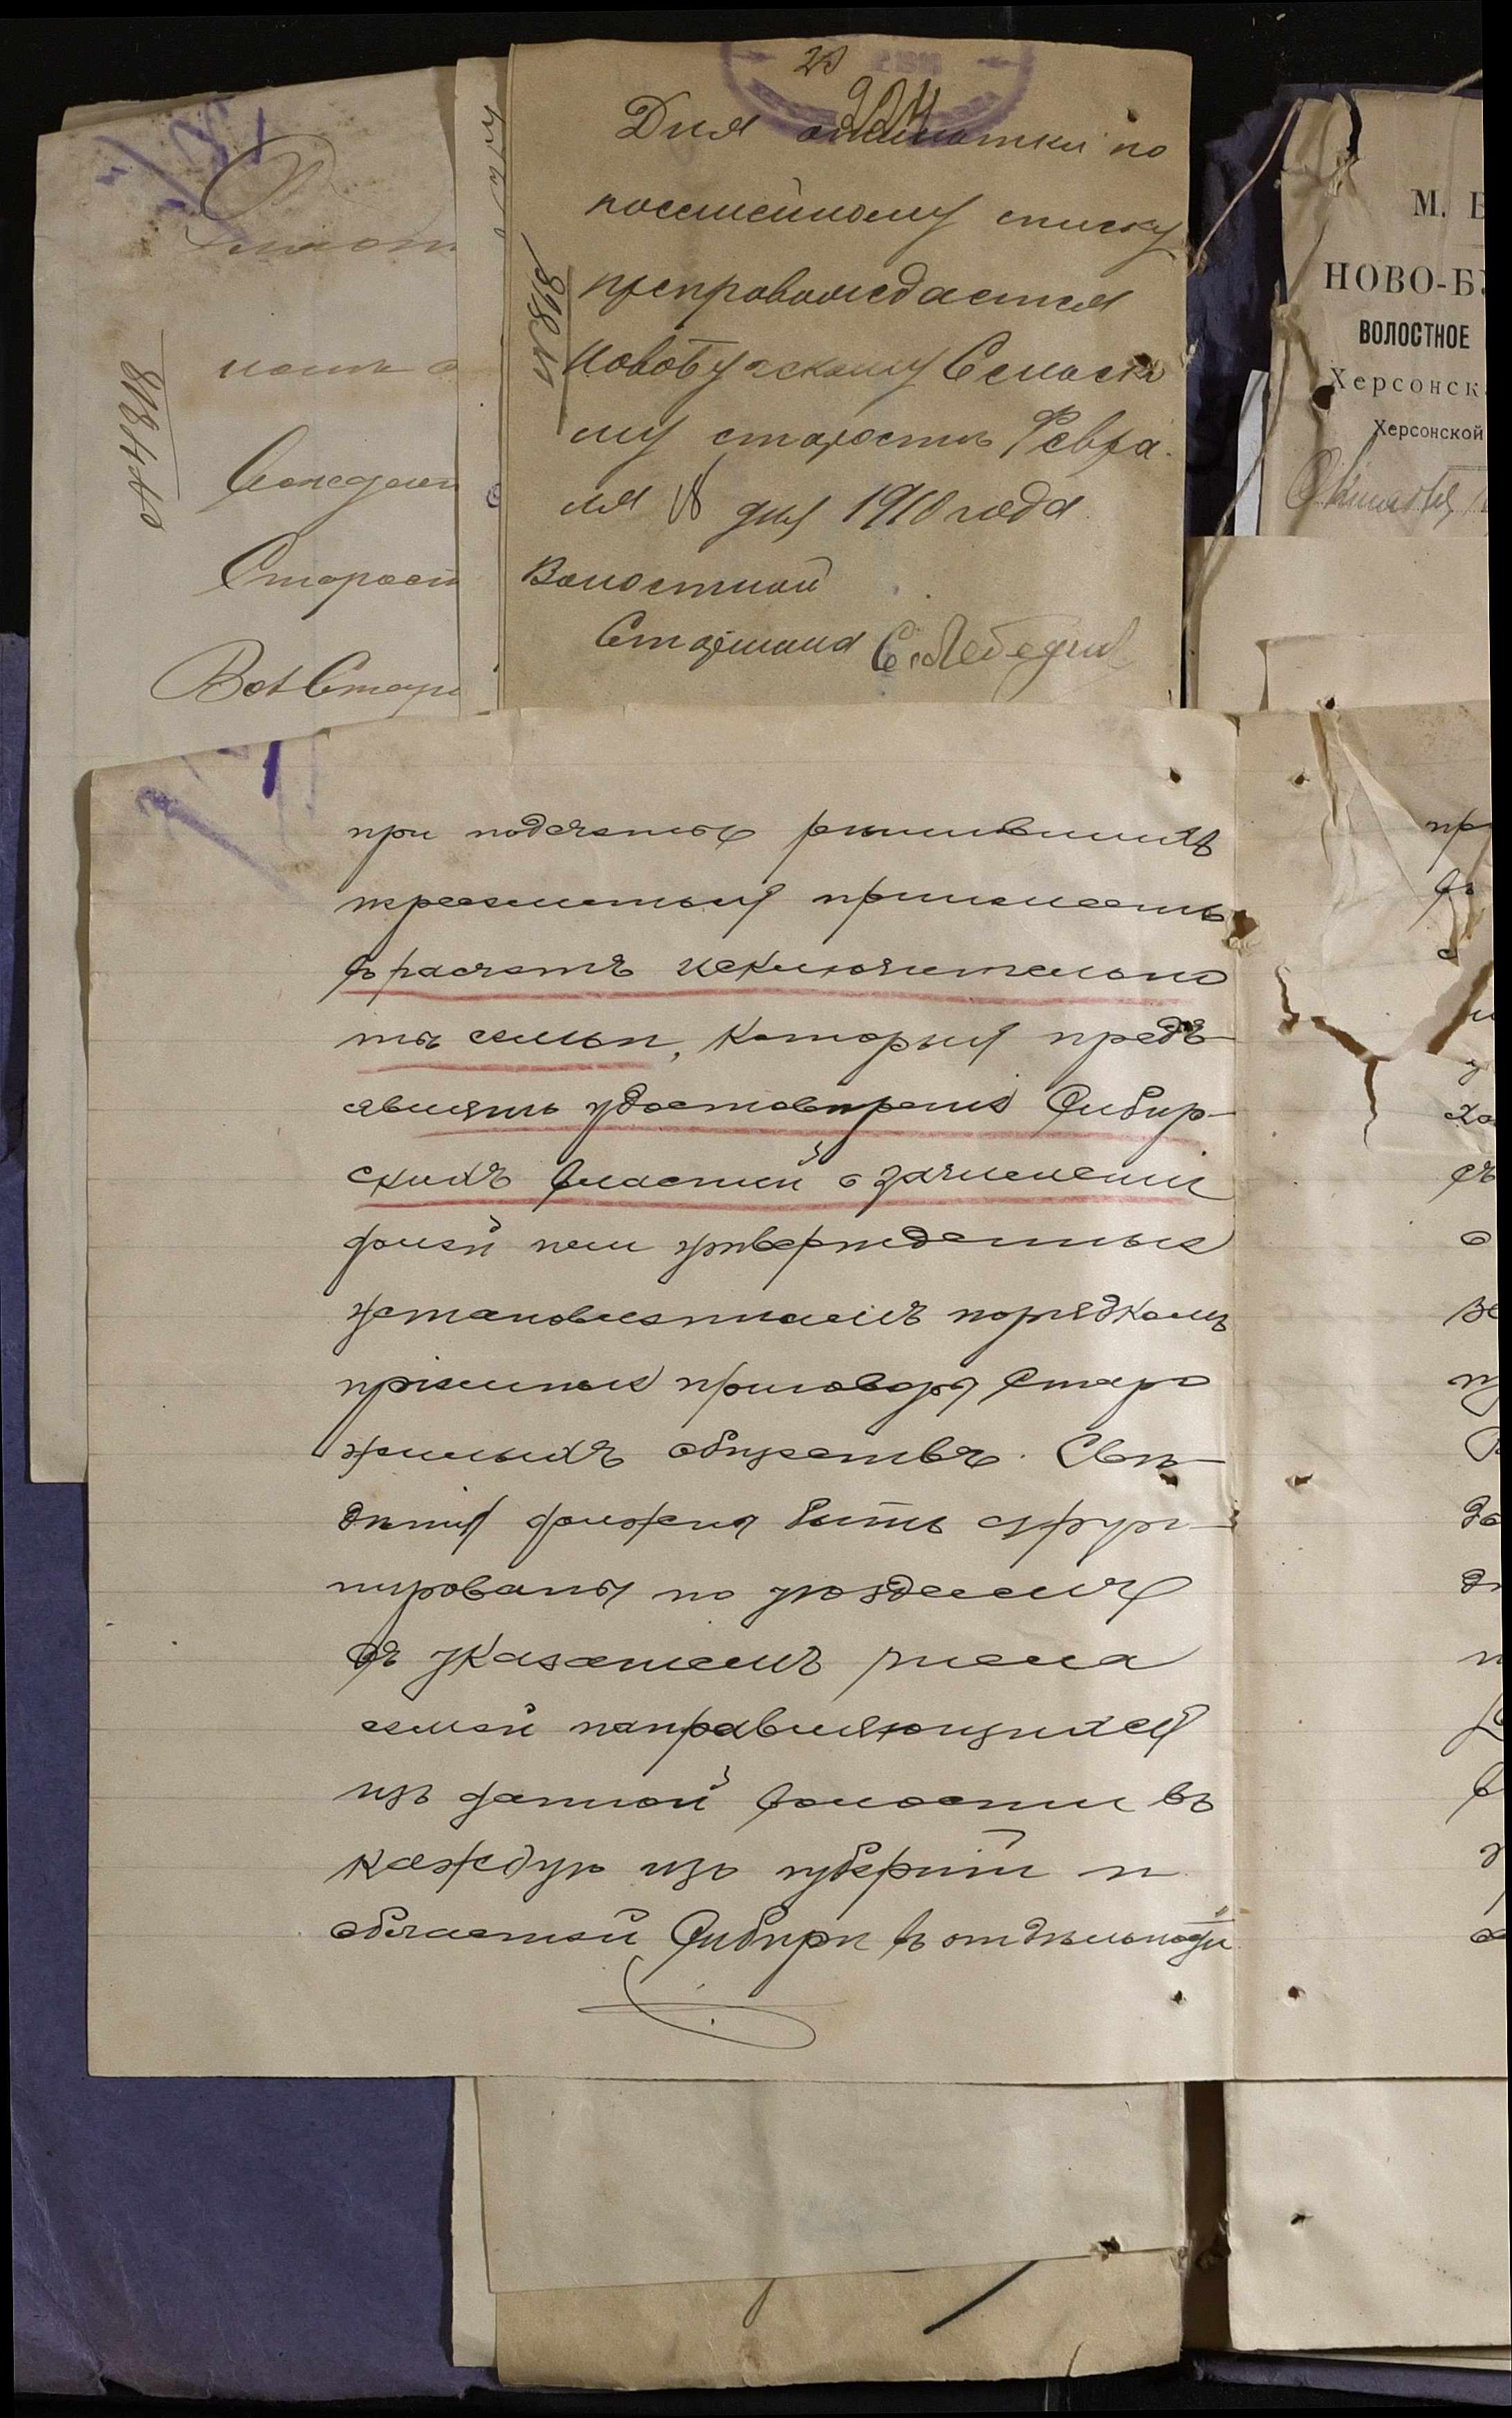 20
204
Для отмѣтки по
посемейному списку
препровождается
Новобугскому Сельско
му старостѣ Февра.
ля 18 дня 1910 года
Волостной
Старшина С. Лебедин
№ 818
№ 4818
Старост
Вол Стар
М. В
НОВО-БУ
ВОЛОСТНОЕ
Херсонск
Херсонской
при подсчетѣ рѣшившихъ
переселиться принимать
въ расчетъ исключительно
тѣ семьи, которыя предъ-
явятъ удостовѣренія Сибир-
скихъ властей о зачисленіи
долей или утвержденныя
установленнымъ порядкомъ
пріемные приговоры старо
жилыхъ обществъ. Свѣ-
дѣнія должны быть сгруп-
пированы по уѣздамъ
съ указаніемъ числа
семей направляющихся
изъ данной волости въ
каждую изъ губерній и
областей Сибири въ отдѣльности